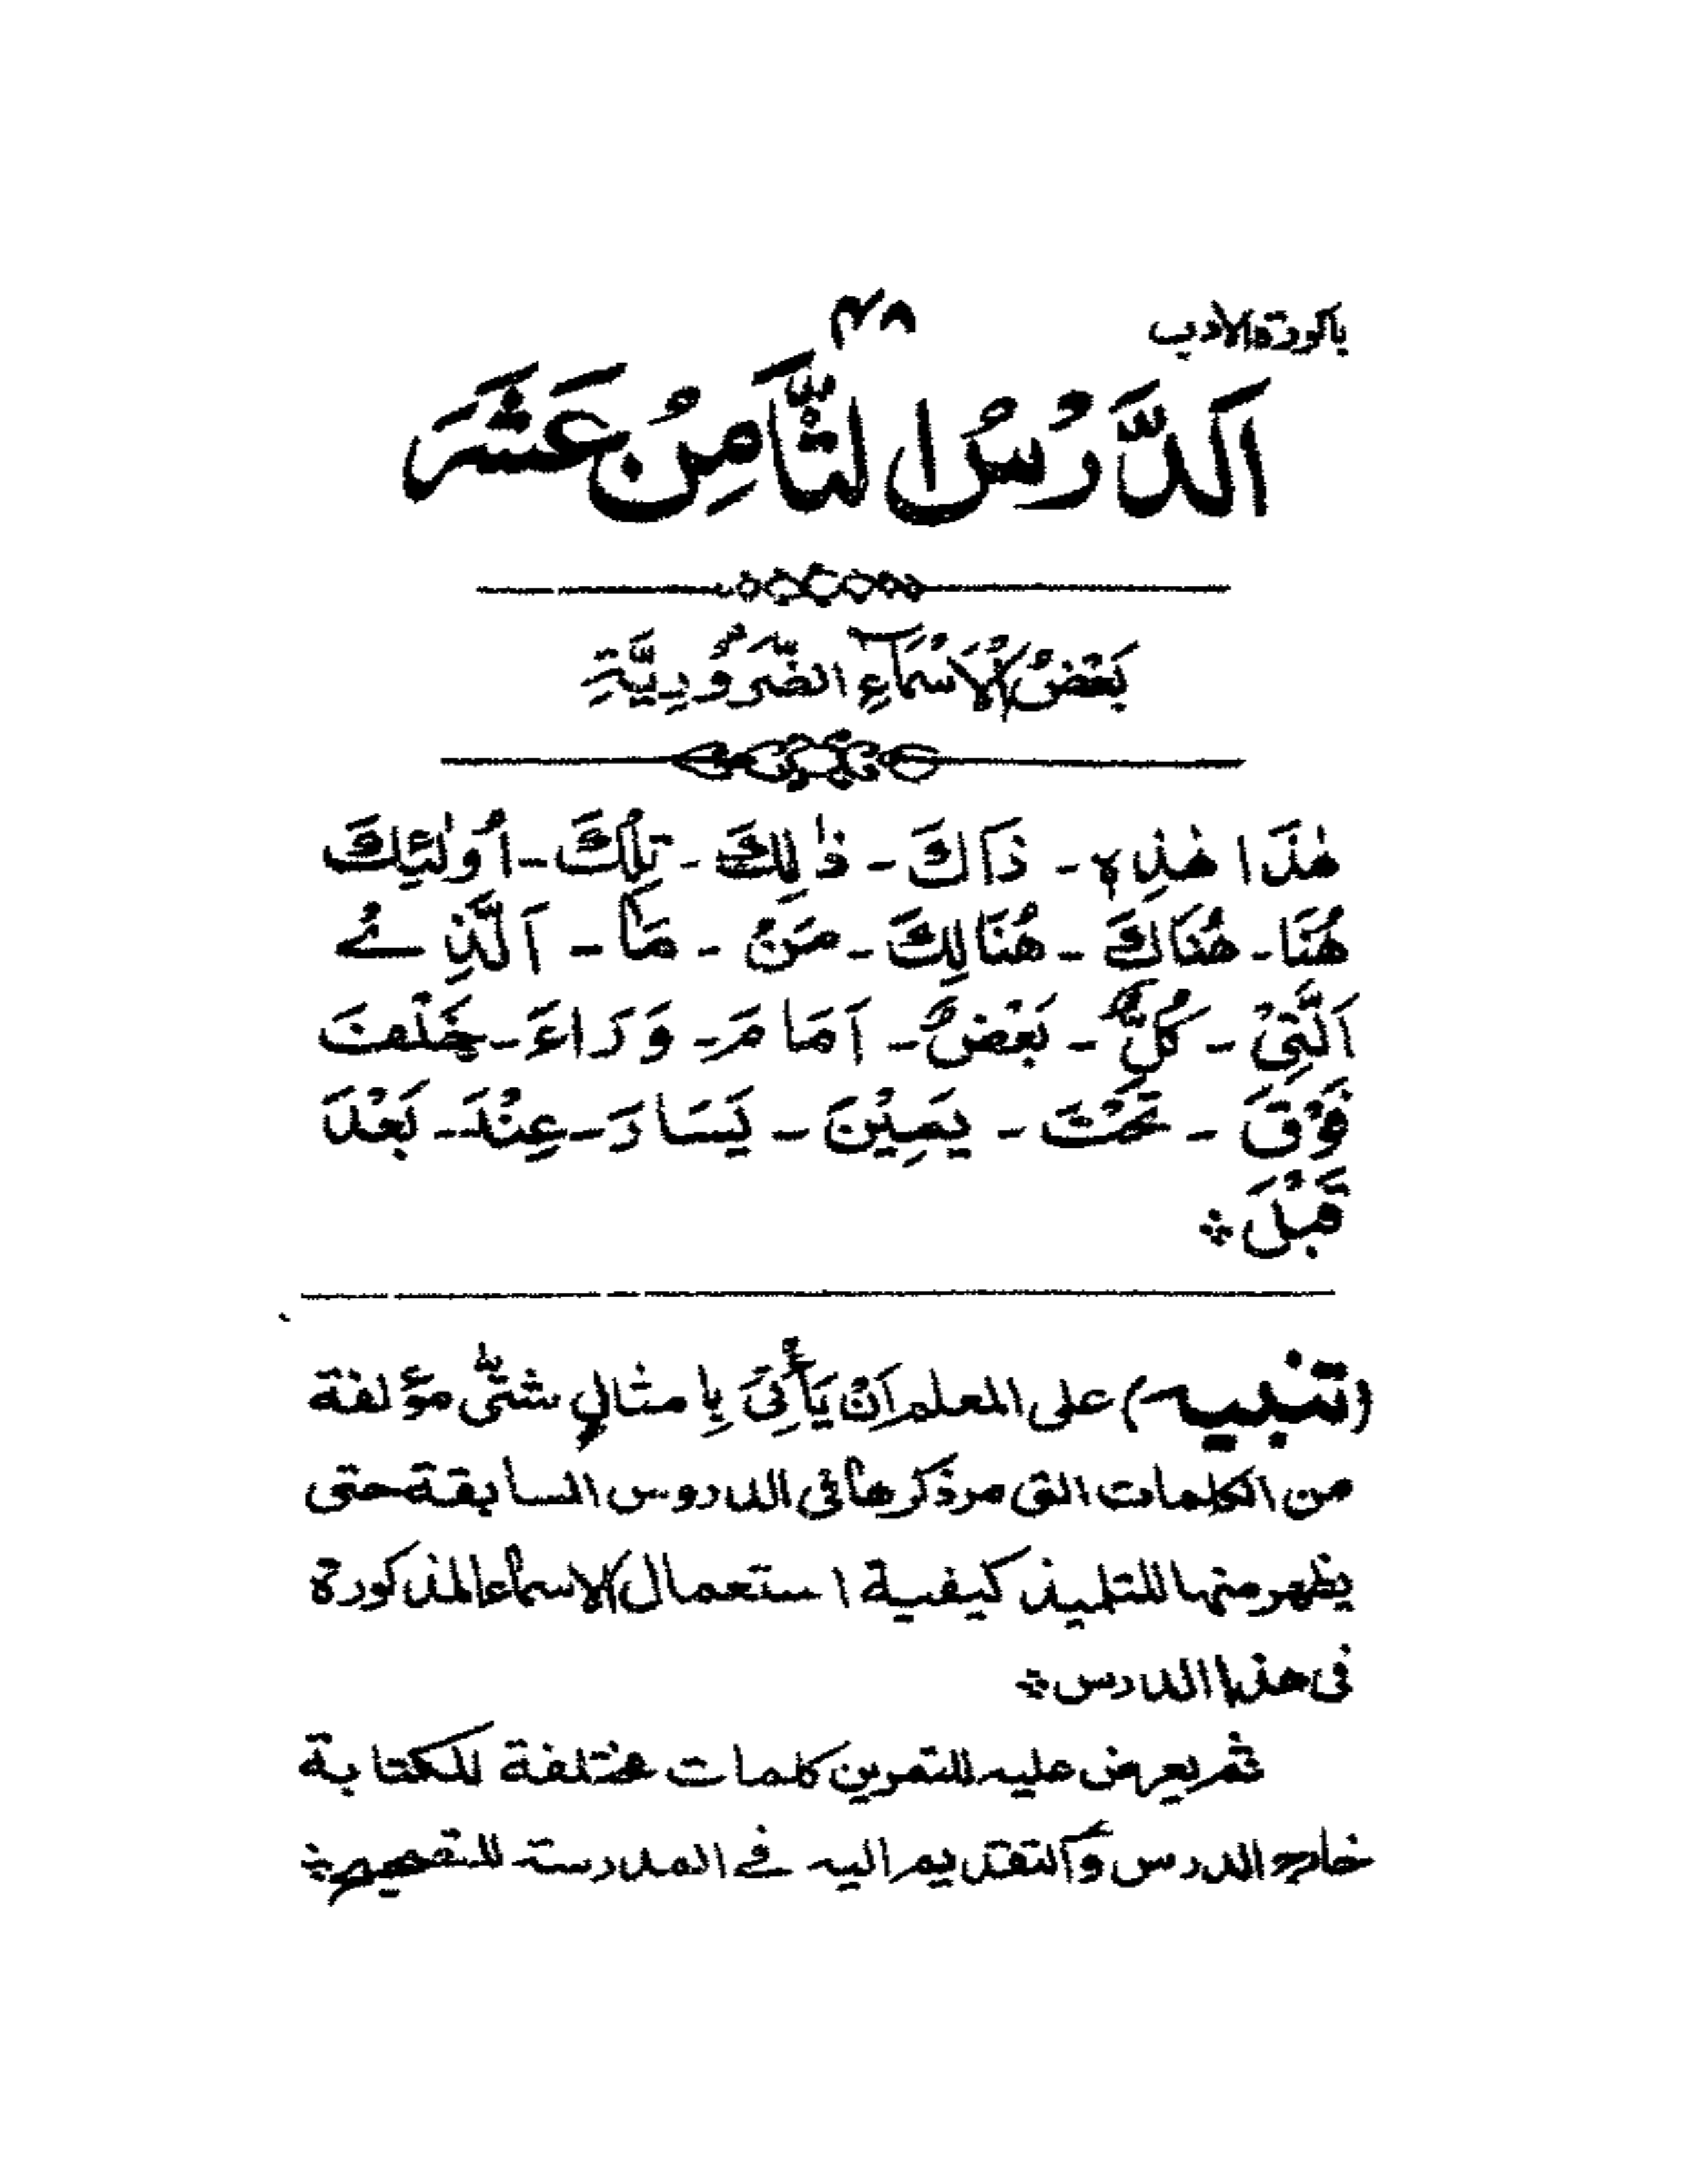 باكورة الادب
۴۸
اَلدَّرْسُ الثَّامِنُ عَشَرَ
بَعْضُ الْاَسْمَآءِ الضَّرُوْرِيَّةِ
هٰذَا هٰذِهٖ - ذَاكَ - ذٰلِكَ - تِلْكَ - اُولٰئِكَ
هُنَا - هُنَاكَ - هُنَالِكَ - مَنْ - مَا - اَلَّذِيْ
اَلَّتِيْ - كُلٌّ - بَعْضٌ - اَمَامَ - وَرَاءَ - خَلْفَ
فَوْقَ - تَحْتَ - يَمِيْنَ - يَسَارَ - عِنْدَ - بَعْدَ
قَبْلَ ⁘
(تنبيه) على المعلم اَنْ يَأْتِىَ بِامثالٍ شتّٰى مؤلفة
من الكلمات التى مر ذكرها فى الدروس السابقة حتى
يظهر منها للتلميذ كيفية استعمال الاسماء المذكورة
فى هذا الدرس ⁘
ثم يعرض عليه للتمرين كلمات مختلفة للكتابة
خارج الدرس والتقديم اليه فى المدرسة للتصحيح ⁘